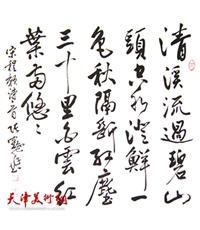 清溪流過碧山
頭空水澄鮮一
色秋隔斷紅塵
三十里白雲紅
葉兩悠悠
宋程顥詩
天津美术网